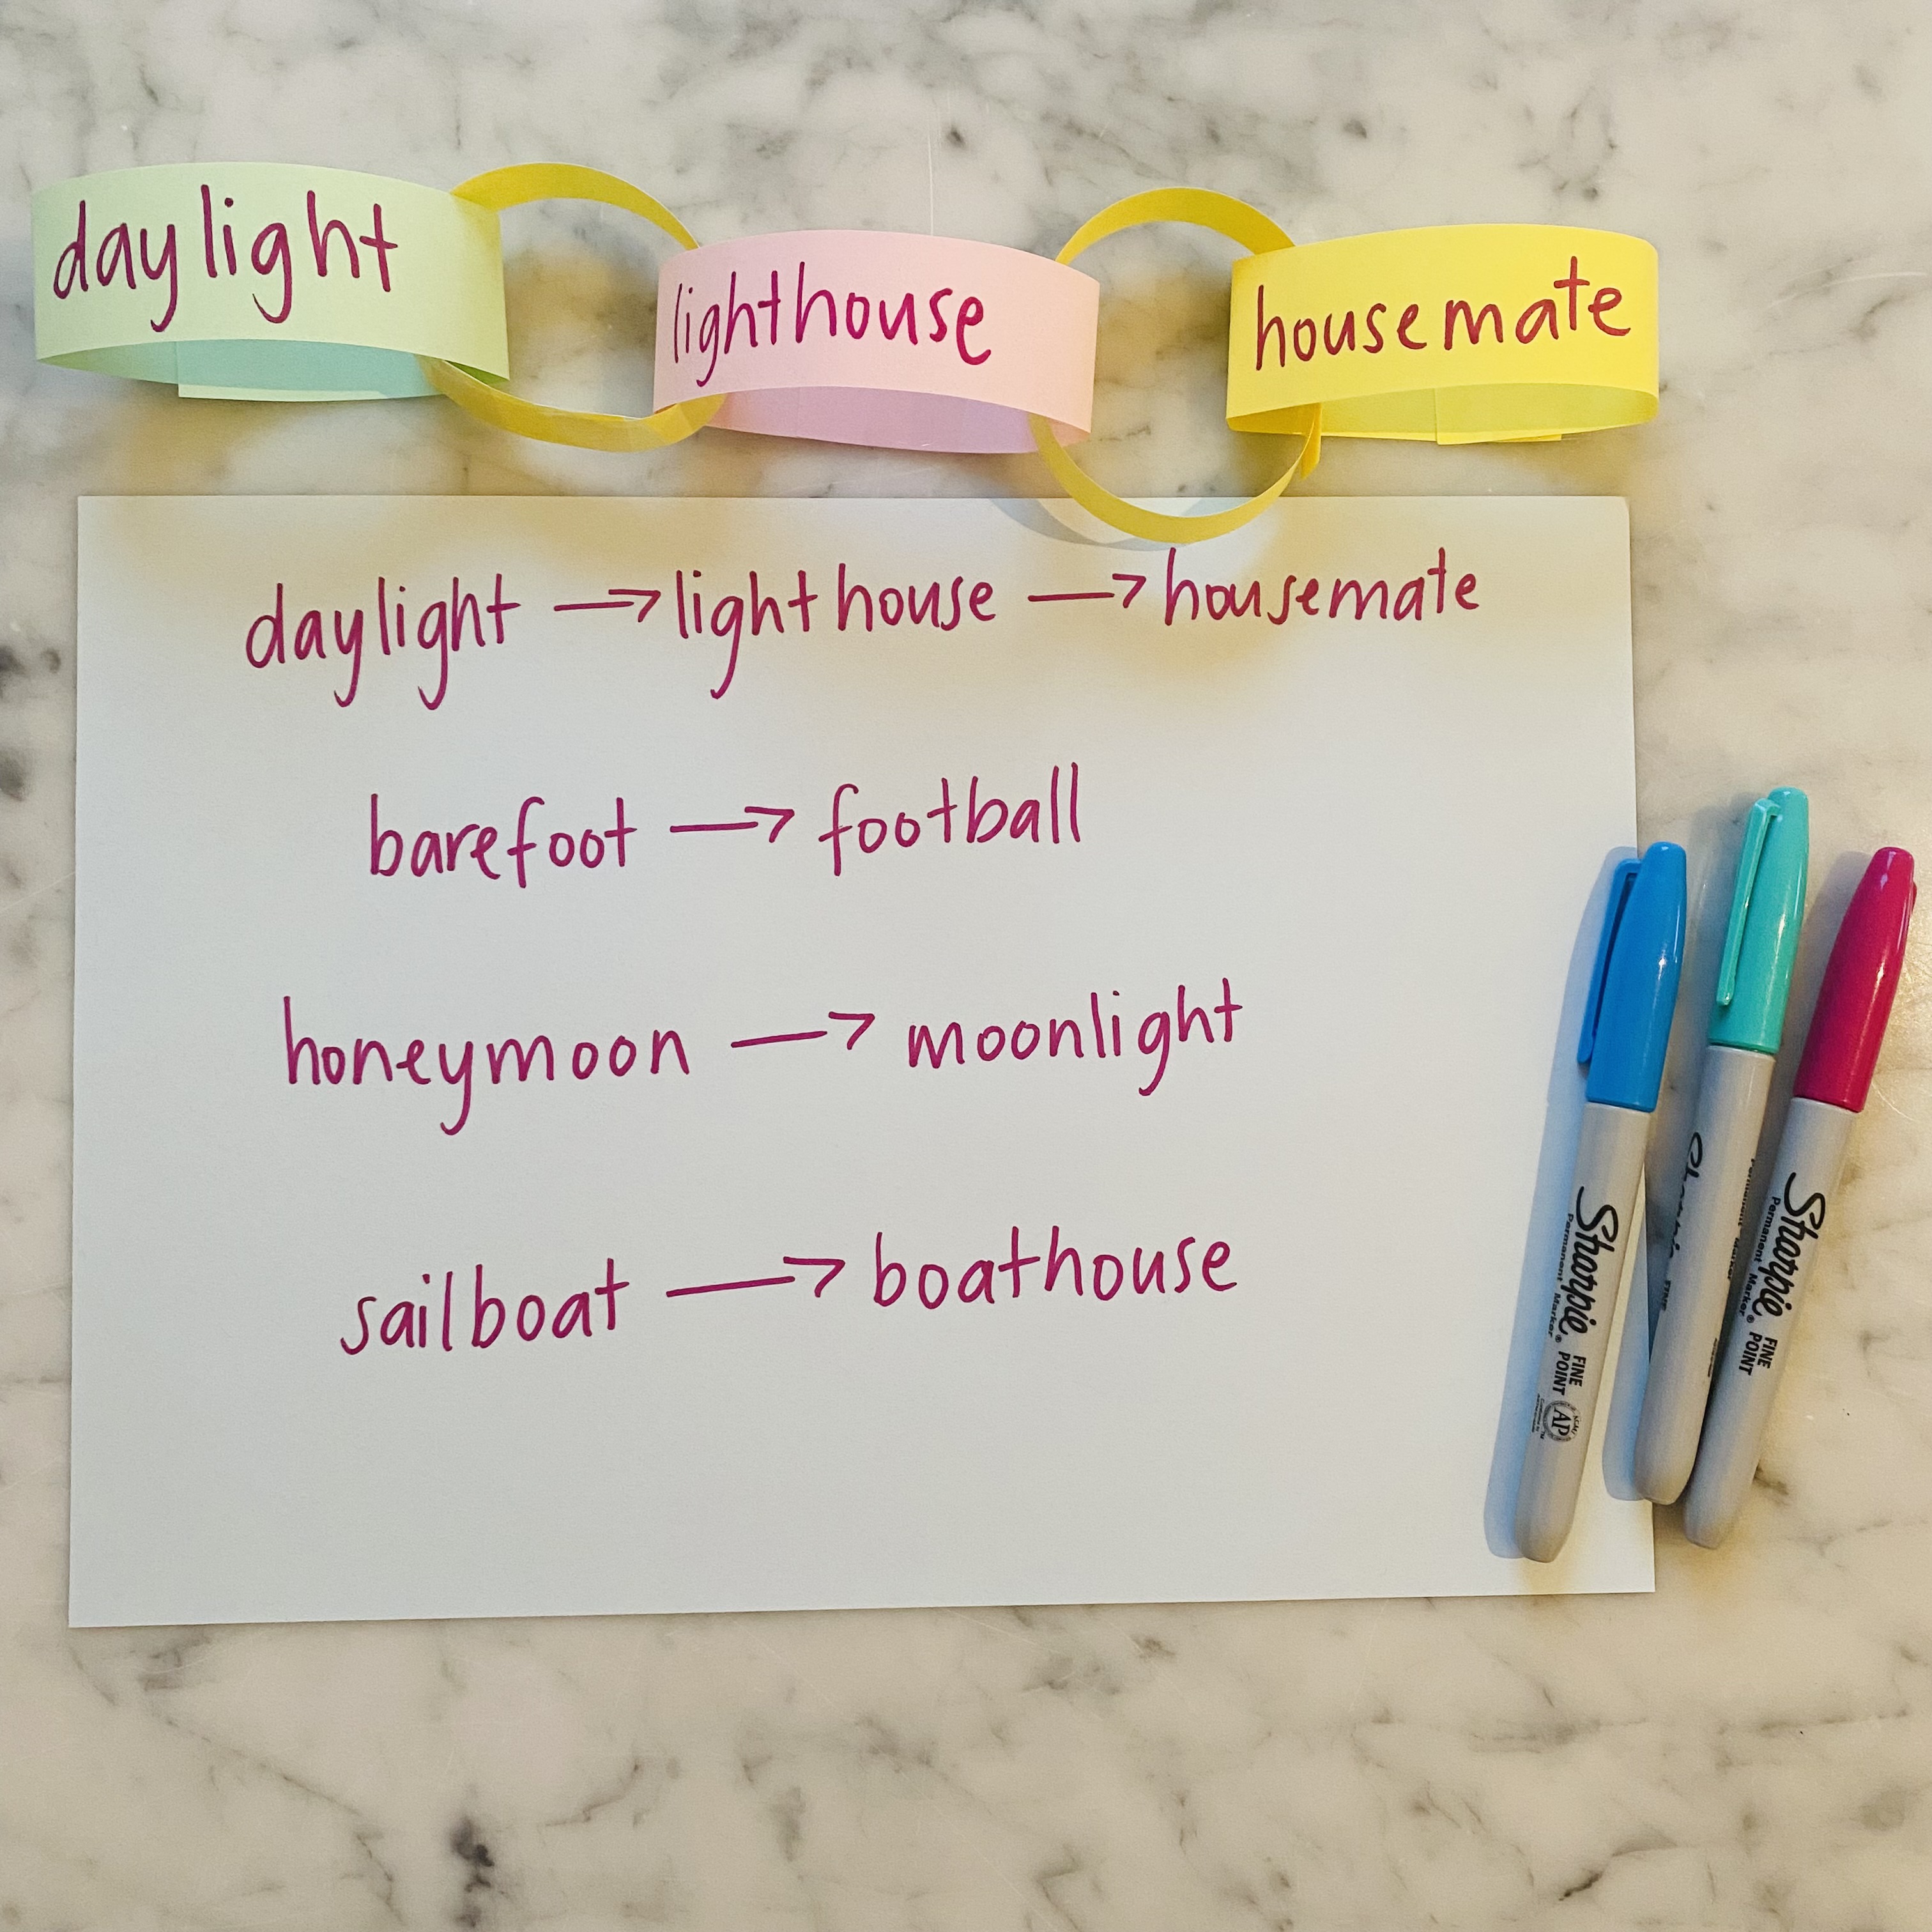 daylight
lighthouse
housemate
daylight → lighthouse → housemate
barefoot → football
honeymoon → moonlight
sailboat → boathouse
Sharpie.
Permanent Marker
FINE
POINT
AP
Sharpie
FINE
Sharpie.
Permanent Marker
FINE
POINT